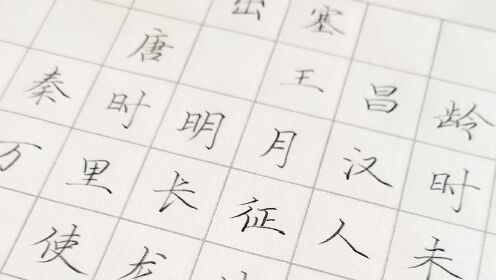 出塞
唐 王昌龄
秦时明月汉时
万里长征人未
使龙